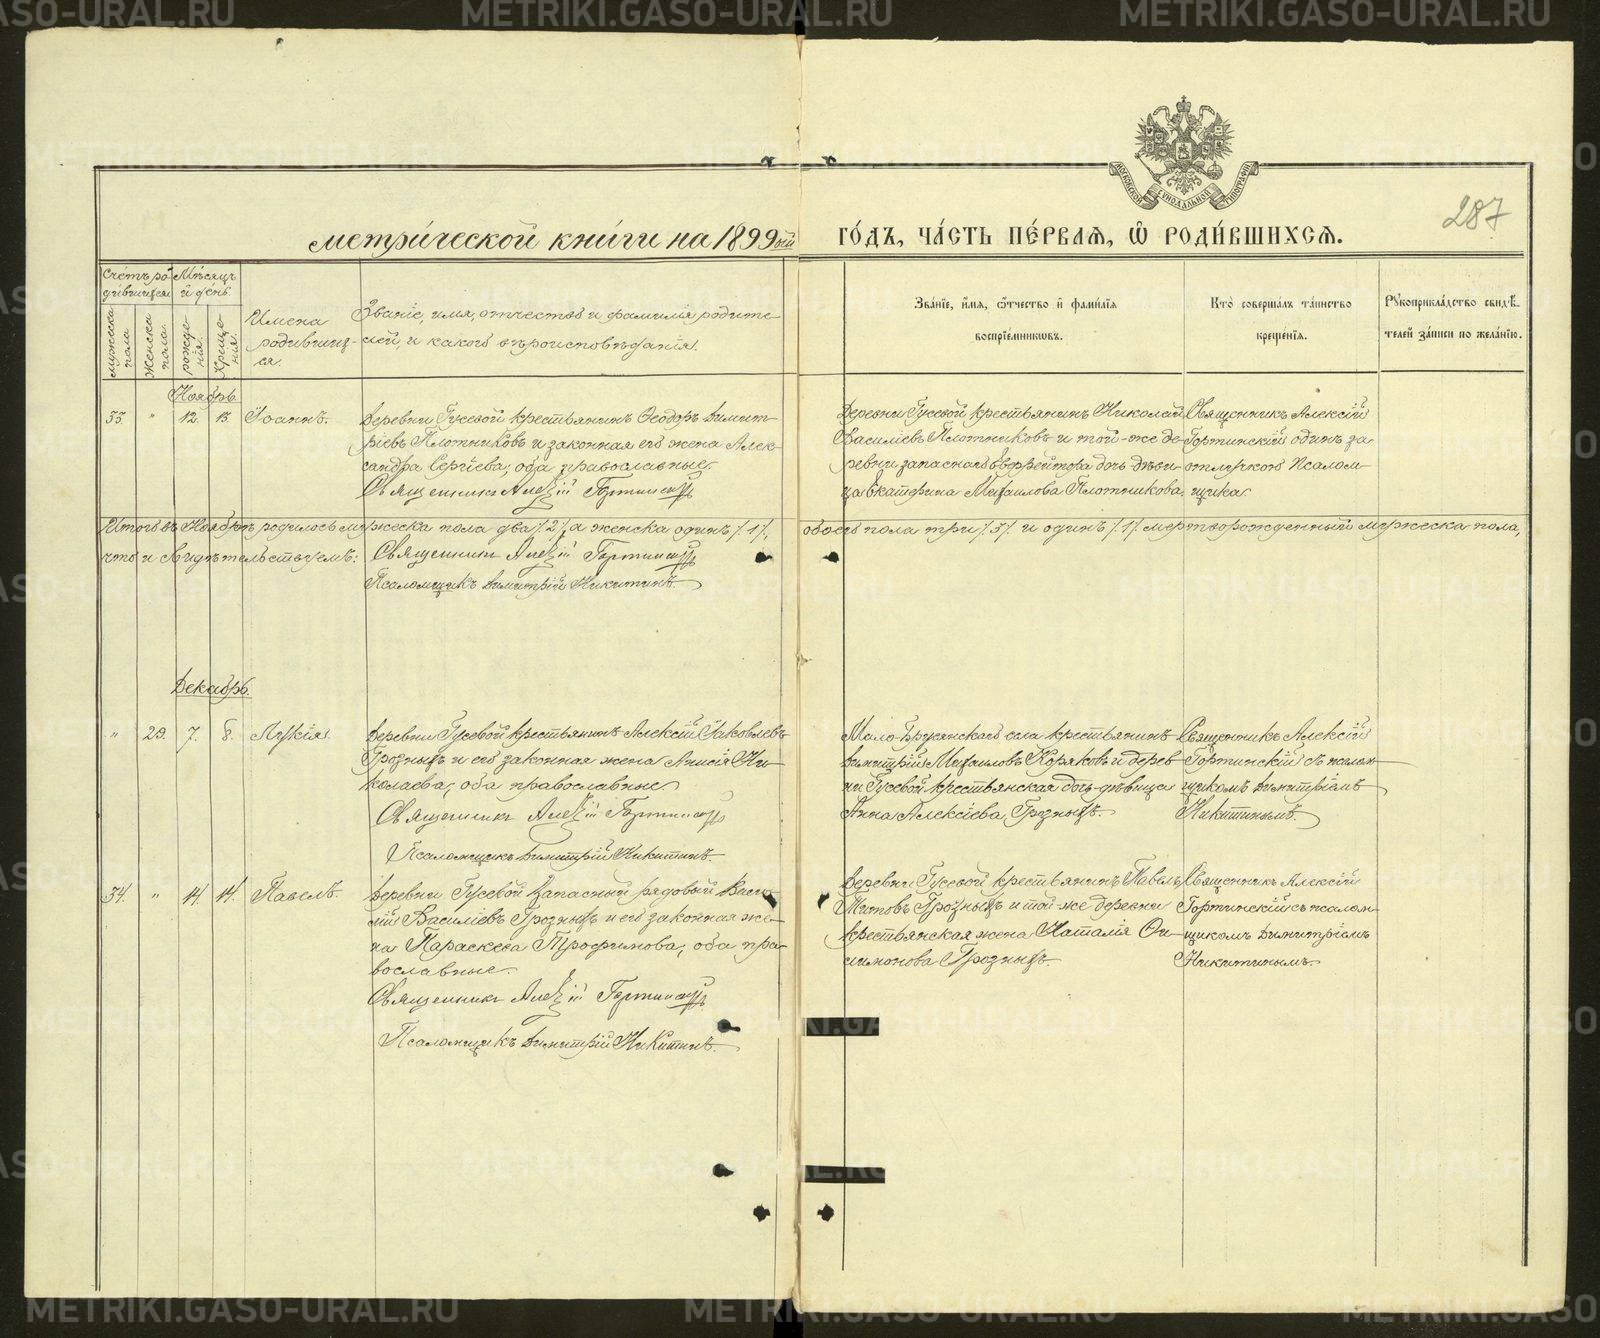 METRIKI.GASO-URAL.RU
метри́ческой кни́ги на 1899ый
го́дъ, ча́сть пе́рвая, ѡ҆ роди́вшихся.
287
Сче́тъ ро
ди́вшихся
Мѣсяцъ
и де́нь.
мужеска
пола
Женска
пола.
рожде
нія.
Креще
нія.
Имена
родившиz-
ся.
Званіе, имя, отчество и фамилія родите-
лей, и какого вѣроисповѣданія.
Зва́нїе, и҆́мя, ѻ҆́тчество и҆ фами́лїя
воспрїе́мниковъ.
Кто̀ соверша́лъ та́инство
креще́нїя.
Рꙋкоприкла́дство свидѣ́-
телей за́писи по жела́нїю.
Ноябрь.
33. " 12. 13. Іоаннъ.
Деревни Гусевой крестьянинъ Ѳеодоръ Димит-
ріевъ Плотниковъ и законная его жена Алек-
сандра Сергіева, оба православные.
Священникъ Алексій Гортинскій
Деревни Гусевой крестьянинъ Николай
Василіевъ Плотниковъ и той-же де-
ревни запаснаго ефрейтора дочь дѣви-
ца Екатерина Михаилова Плотникова.
Священникъ Алексій
Гортинскій одинъ за
отлучкою Псалом-
щика.
Итого въ Ноябрѣ родилось мужеска пола два /2/, а женска одинъ /1/, обоего пола три /3/ и одинъ /1/ мертворожденный мужеска пола,
что и свидѣтельствуемъ:
Священникъ Алексій Гортинскій
Псаломщикъ Димитрій Никитинъ.
Декабрь.
" 29. 7. 8. Лукія.
Деревни Гусевой крестьянинъ Алексій Іаковлевъ
Грозныхъ и его законная жена Анисія Ни-
колаева, оба православные.
Священникъ Алексій Гортинскій
Псаломщикъ Димитрій Никитинъ.
Мало-Брусянскаго села крестьянинъ
Димитрій Михаиловъ Коряковъ и дерев
ни Гусевой крестьянская дочь-дѣвица
Анна Алексіева Грозныхъ.
Священникъ Алексій
Гортинскій съ псалом-
щикомъ Димитріемъ
Никитинымъ.
34. " 14. 14. Павелъ.
Деревни Гусевой запасный рядовой Васи-
лій Василіевъ Грозныхъ и его законная же-
на Параскева Трофимова, оба пра-
вославные.
Священникъ Алексій Гортинскій
Псаломщикъ Димитрій Никитинъ.
Деревни Гусевой крестьянинъ Павелъ
Титовъ Грозныхъ и той-же деревни
крестьянская жена Наталія Они-
симонова Грозныхъ.
Священникъ Алексій
Гортинскій съ псалом-
щикомъ Димитріемъ
Никитинымъ.